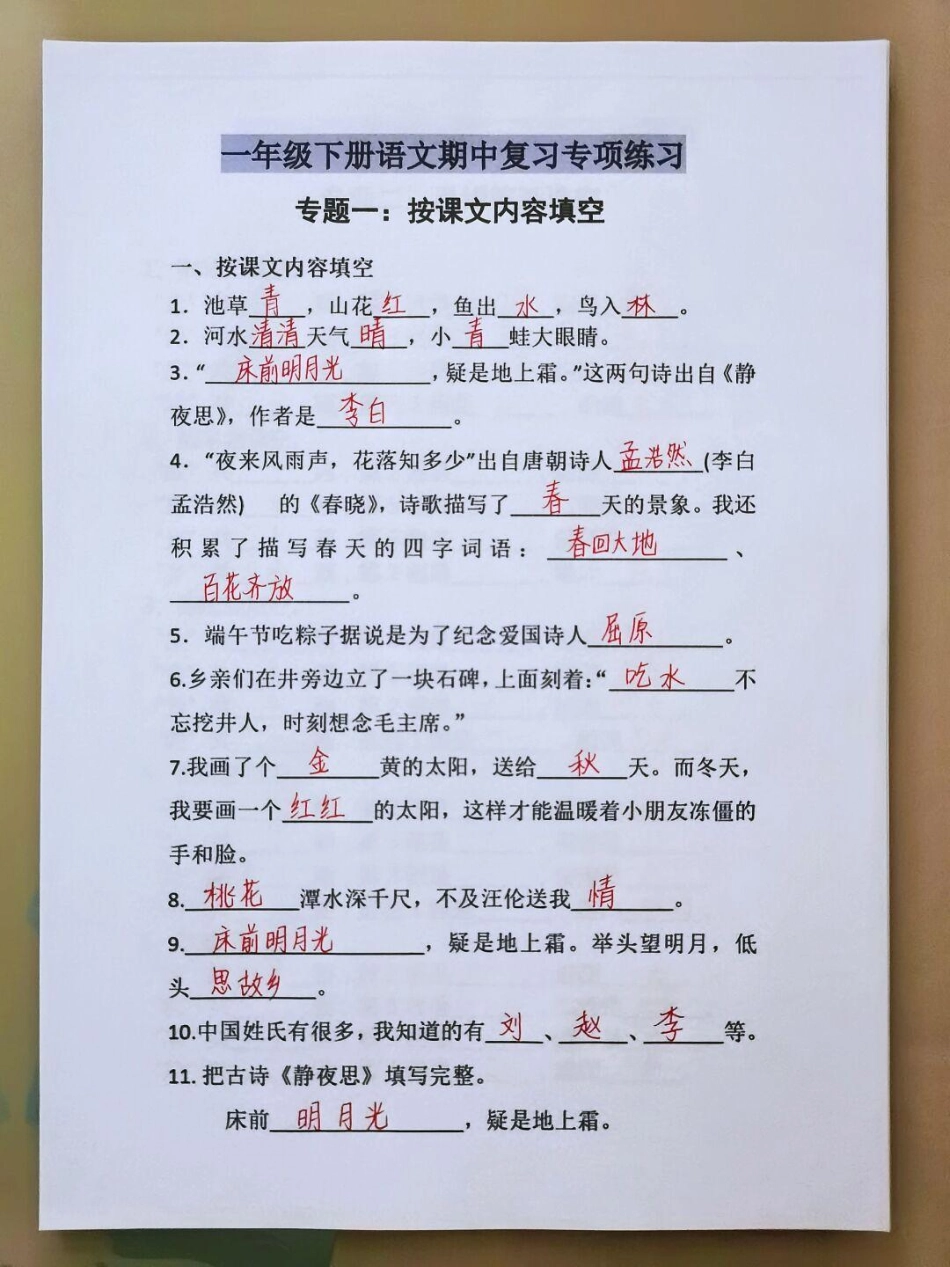 一年级下册语文期中复习专项练习
专题一：按课文内容填空
一、按课文内容填空
1. 池草青，山花红，鱼出水，鸟入林。
2. 河水清清天气晴，小青蛙大眼睛。
3．“床前明月光，疑是地上霜。”这两句诗出自《静
夜思》，作者是李白。
4．“夜来风雨声，花落知多少”出自唐朝诗人孟浩然(李白
孟浩然) 的《春晓》，诗歌描写了春天的景象。我还
积累了描写春天的四字词语：春回大地、
百花齐放。
5．端午节吃粽子据说是为了纪念爱国诗人屈原。
6.乡亲们在井旁边立了一块石碑，上面刻着：“吃水不
忘挖井人，时刻想念毛主席。”
7.我画了个金黄的太阳，送给秋天。而冬天，
我要画一个红红的太阳，这样才能温暖着小朋友冻僵的
手和脸。
8.桃花潭水深千尺，不及汪伦送我情。
9.床前明月光，疑是地上霜。举头望明月，低
头思故乡。
10.中国姓氏有很多，我知道的有刘、赵、李等。
11. 把古诗《静夜思》填写完整。
床前明月光，疑是地上霜。